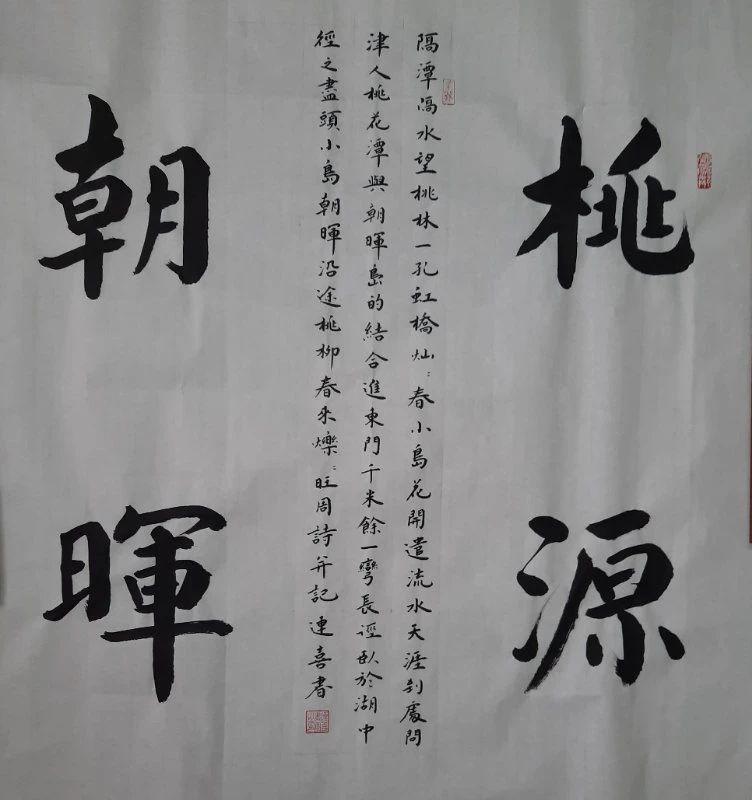 桃源
隔潭隔水望桃林一孔虹橋灿〻春小島花開遣流水天涯到處問
津人桃花潭與朝暉島的結合進東門千米餘一彎長逕卧於湖中
徑之盡頭小島朝暉沿途桃柳春来爍〻旺周詩并記連喜書
朝暉